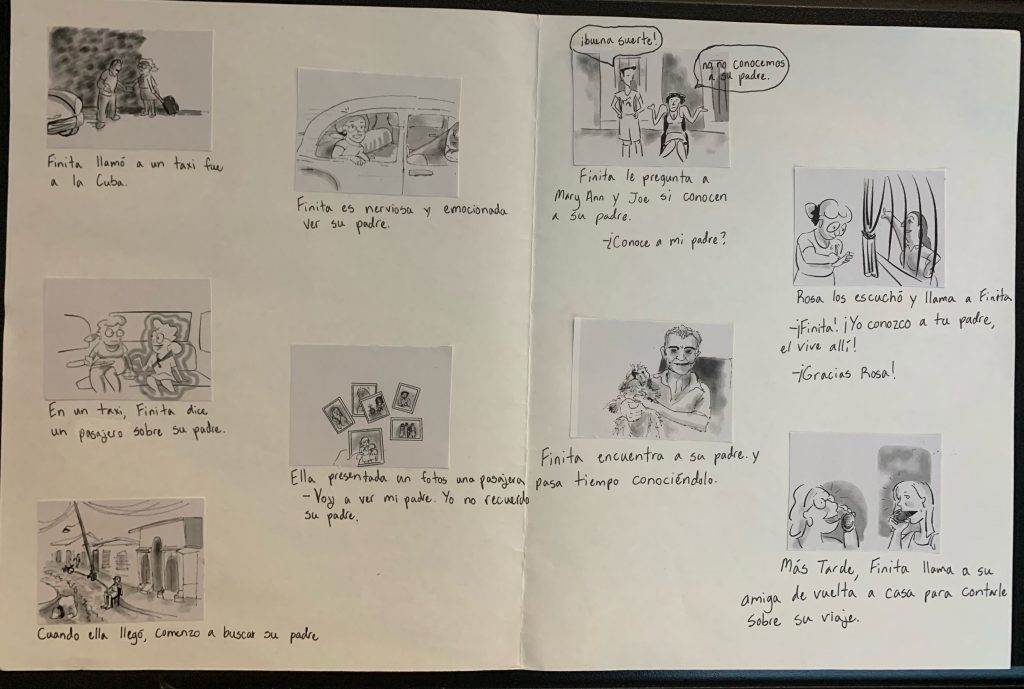 Finita llamó a un taxi fue
a la Cuba.
Finita es nerviosa y emocionada
ver su padre.
En un taxi, Finita dice
un pasajero sobre su padre.
Ella presentada un fotos una pasajera
- Voy a ver mi padre. Yo no recuerdo
su padre.
Cuando ella llegó, comenzo a buscar su padre
¡buena suerte!
no, no conocemos
a su padre.
Finita le pregunta a
Mary Ann y Joe si conocen
a su padre.
-¿Conoce a mi padre?
Rosa los escuchó y llama a Finita
-¡Finita! ¡Yo conozco a tu padre,
el vive allí!
-¡Gracias Rosa!
Finita encuentra a su padre. y
pasa tiempo conociéndolo.
Más Tarde, Finita llama a su
amiga de vuelta a casa para contarle
sobre su viaje.